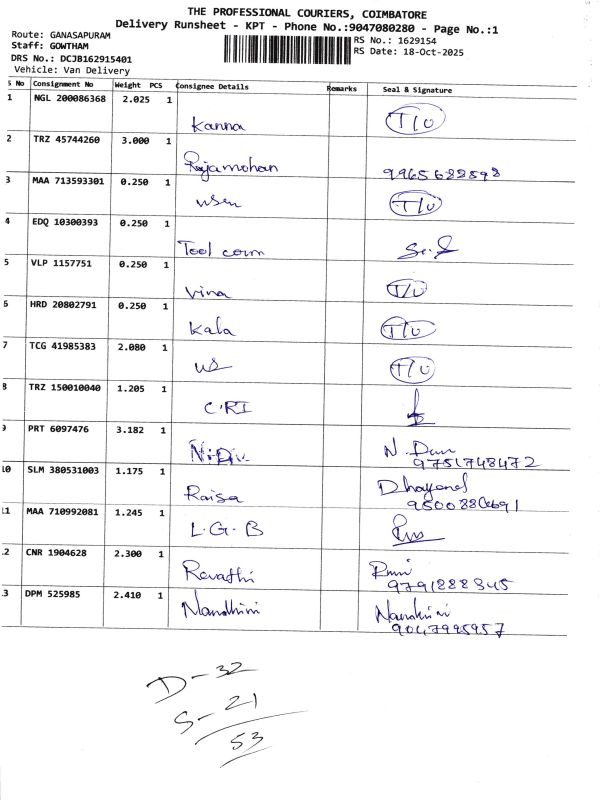 THE PROFESSIONAL COURIERS, COIMBATORE
Delivery Runsheet - KPT - Phone No.:9047080280 - Page No.:1
Route: GANASAPURAM RS No.: 1629154
Staff: GOWTHAM RS Date: 18-Oct-2025
DRS No.: DCJB162915401
Vehicle: Van Delivery
S No Consignment No Weight PCS Consignee Details Remarks Seal & Signature
1 NGL 200086368 2.025 1
Kanna T/U
2 TRZ 45744260 3.000 1
Rajamohan
3 MAA 713593301 0.250 1
T/U
4 EDQ 10300393 0.250 1
Tool com
5 VLP 1157751 0.250 1
Vina T/U
6 HRD 20802791 0.250 1
Kala T/U
7 TCG 41985383 2.080 1
T/U
8 TRZ 150010040 1.205 1
C.RI
9 PRT 6097476 3.182 1
N.Div
9751748472
10 SLM 380531003 1.175 1
Raisa
11 MAA 710992081 1.245 1
L.G.B
12 CNR 1904628 2.300 1
Revathi
9791888345
13 DPM 525985 2.410 1
Nandhini Nandhini
9047995957
D-32
S-21
53